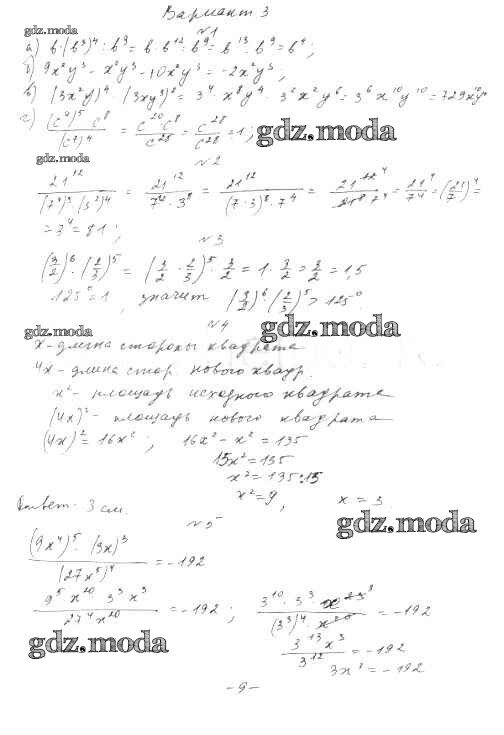 Вариант 3
gdz.moda
№1
а) b·(b³)⁴ : b⁹ = b·b¹² : b⁹ = b¹³ : b⁹ = b⁴;
б) 9x²y³ - x²y³ - 10x²y³ = -2x²y³;
в) (3x²y)⁴ · (3xy³)² = 3⁴ · x⁸y⁴ · 3²x²y⁶ = 3⁶x¹⁰y¹⁰ = 729x¹⁰y¹⁰
г) (c⁴)⁵·c⁸ / (c⁷)⁴ = c²⁰c⁸ / c²⁸ = c²⁸ / c²⁸ = 1;
gdz.moda
gdz.moda
№2
21¹² / (7⁴)³·(3²)⁴ = 21¹² / 7¹²·3⁸ = 21¹² / (7·3)⁸·7⁴ = 21¹²⁴ / 21⁸·7⁴ = 21⁴ / 7⁴ = (21/7)⁴ =
= 3⁴ = 81;
№3
(3/2)⁶·(2/3)⁵ = (3/2 · 2/3)⁵ · 3/2 = 1 · 3/2 = 3/2 = 1,5
125⁰ = 1, значит (3/2)⁶·(2/3)⁵ > 125⁰
№4
gdz.moda
gdz.moda
x - длина стороны квадрата
4x - длина стор. нового квадр.
x² - площадь исходного квадрата
(4x)² - площадь нового квадрата
(4x)² = 16x²; 16x² - x² = 135
15x² = 135
x² = 135:15
x² = 9, x = 3
Ответ: 3 см.
gdz.moda
№5
(9x⁴)⁵ · (3x)³ / (27x⁵)⁴ = -192
9⁵x²⁰ 3³x³ / 27⁴x²⁰ = -192; 3¹⁰·3³ x²³ ³ / (3³)⁴·x²⁰ = -192
gdz.moda
3¹³x³ / 3¹² = -192
3x³ = -192
-9-